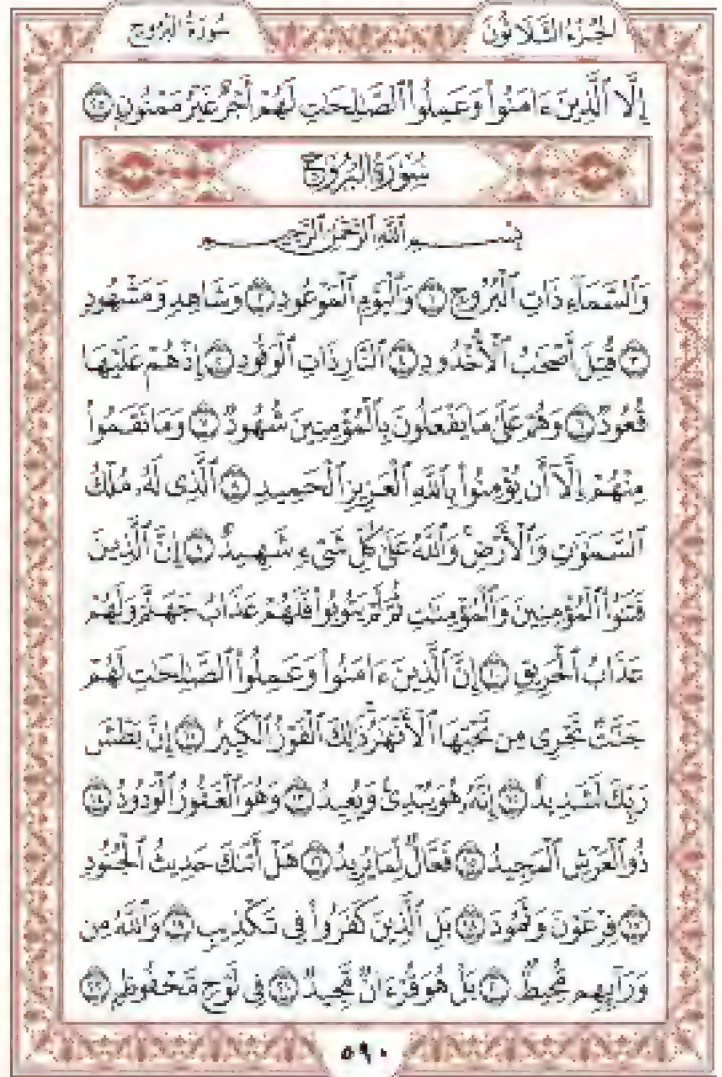 سُورَةُ البُرُوجِ
الجُزْءُ الثَّلَاثُونَ
إِلَّا ٱلَّذِينَ ءَامَنُوا۟ وَعَمِلُوا۟ ٱلصَّٰلِحَٰتِ لَهُمْ أَجْرٌ غَيْرُ مَمْنُونٍۭ ٢٥
سُورَةُ البُرُوجِ
بِسْمِ ٱللَّهِ ٱلرَّحْمَٰنِ ٱلرَّحِيمِ
وَٱلسَّمَآءِ ذَاتِ ٱلْبُرُوجِ ١ وَٱلْيَوْمِ ٱلْمَوْعُودِ ٢ وَشَاهِدٍ وَمَشْهُودٍ
٣ قُتِلَ أَصْحَٰبُ ٱلْأُخْدُودِ ٤ ٱلنَّارِ ذَاتِ ٱلْوَقُودِ ٥ إِذْ هُمْ عَلَيْهَا
قُعُودٌ ٦ وَهُمْ عَلَىٰ مَا يَفْعَلُونَ بِٱلْمُؤْمِنِينَ شُهُودٌ ٧ وَمَا نَقَمُوا۟
مِنْهُمْ إِلَّآ أَن يُؤْمِنُوا۟ بِٱللَّهِ ٱلْعَزِيزِ ٱلْحَمِيدِ ٨ ٱلَّذِى لَهُۥ مُلْكُ
ٱلسَّمَٰوَٰتِ وَٱلْأَرْضِ وَٱللَّهُ عَلَىٰ كُلِّ شَىْءٍ شَهِيدٌ ٩ إِنَّ ٱلَّذِينَ
فَتَنُوا۟ ٱلْمُؤْمِنِينَ وَٱلْمُؤْمِنَٰتِ ثُمَّ لَمْ يَتُوبُوا۟ فَلَهُمْ عَذَابُ جَهَنَّمَ وَلَهُمْ
عَذَابُ ٱلْحَرِيقِ ١٠ إِنَّ ٱلَّذِينَ ءَامَنُوا۟ وَعَمِلُوا۟ ٱلصَّٰلِحَٰتِ لَهُمْ
جَنَّٰتٌ تَجْرِى مِن تَحْتِهَا ٱلْأَنْهَٰرُ ذَٰلِكَ ٱلْفَوْزُ ٱلْكَبِيرُ ١١ إِنَّ بَطْشَ
رَبِّكَ لَشَدِيدٌ ١٢ إِنَّهُۥ هُوَ يُبْدِئُ وَيُعِيدُ ١٣ وَهُوَ ٱلْغَفُورُ ٱلْوَدُودُ ١٤
ذُو ٱلْعَرْشِ ٱلْمَجِيدُ ١٥ فَعَّالٌ لِّمَا يُرِيدُ ١٦ هَلْ أَتَىٰكَ حَدِيثُ ٱلْجُنُودِ
١٧ فِرْعَوْنَ وَثَمُودَ ١٨ بَلِ ٱلَّذِينَ كَفَرُوا۟ فِى تَكْذِيبٍ ١٩ وَٱللَّهُ مِن
وَرَآئِهِم مُّحِيطٌۢ ٢٠ بَلْ هُوَ قُرْءَانٌ مَّجِيدٌ ٢١ فِى لَوْحٍ مَّحْفُوظٍۭ ٢٢
٥٩٠